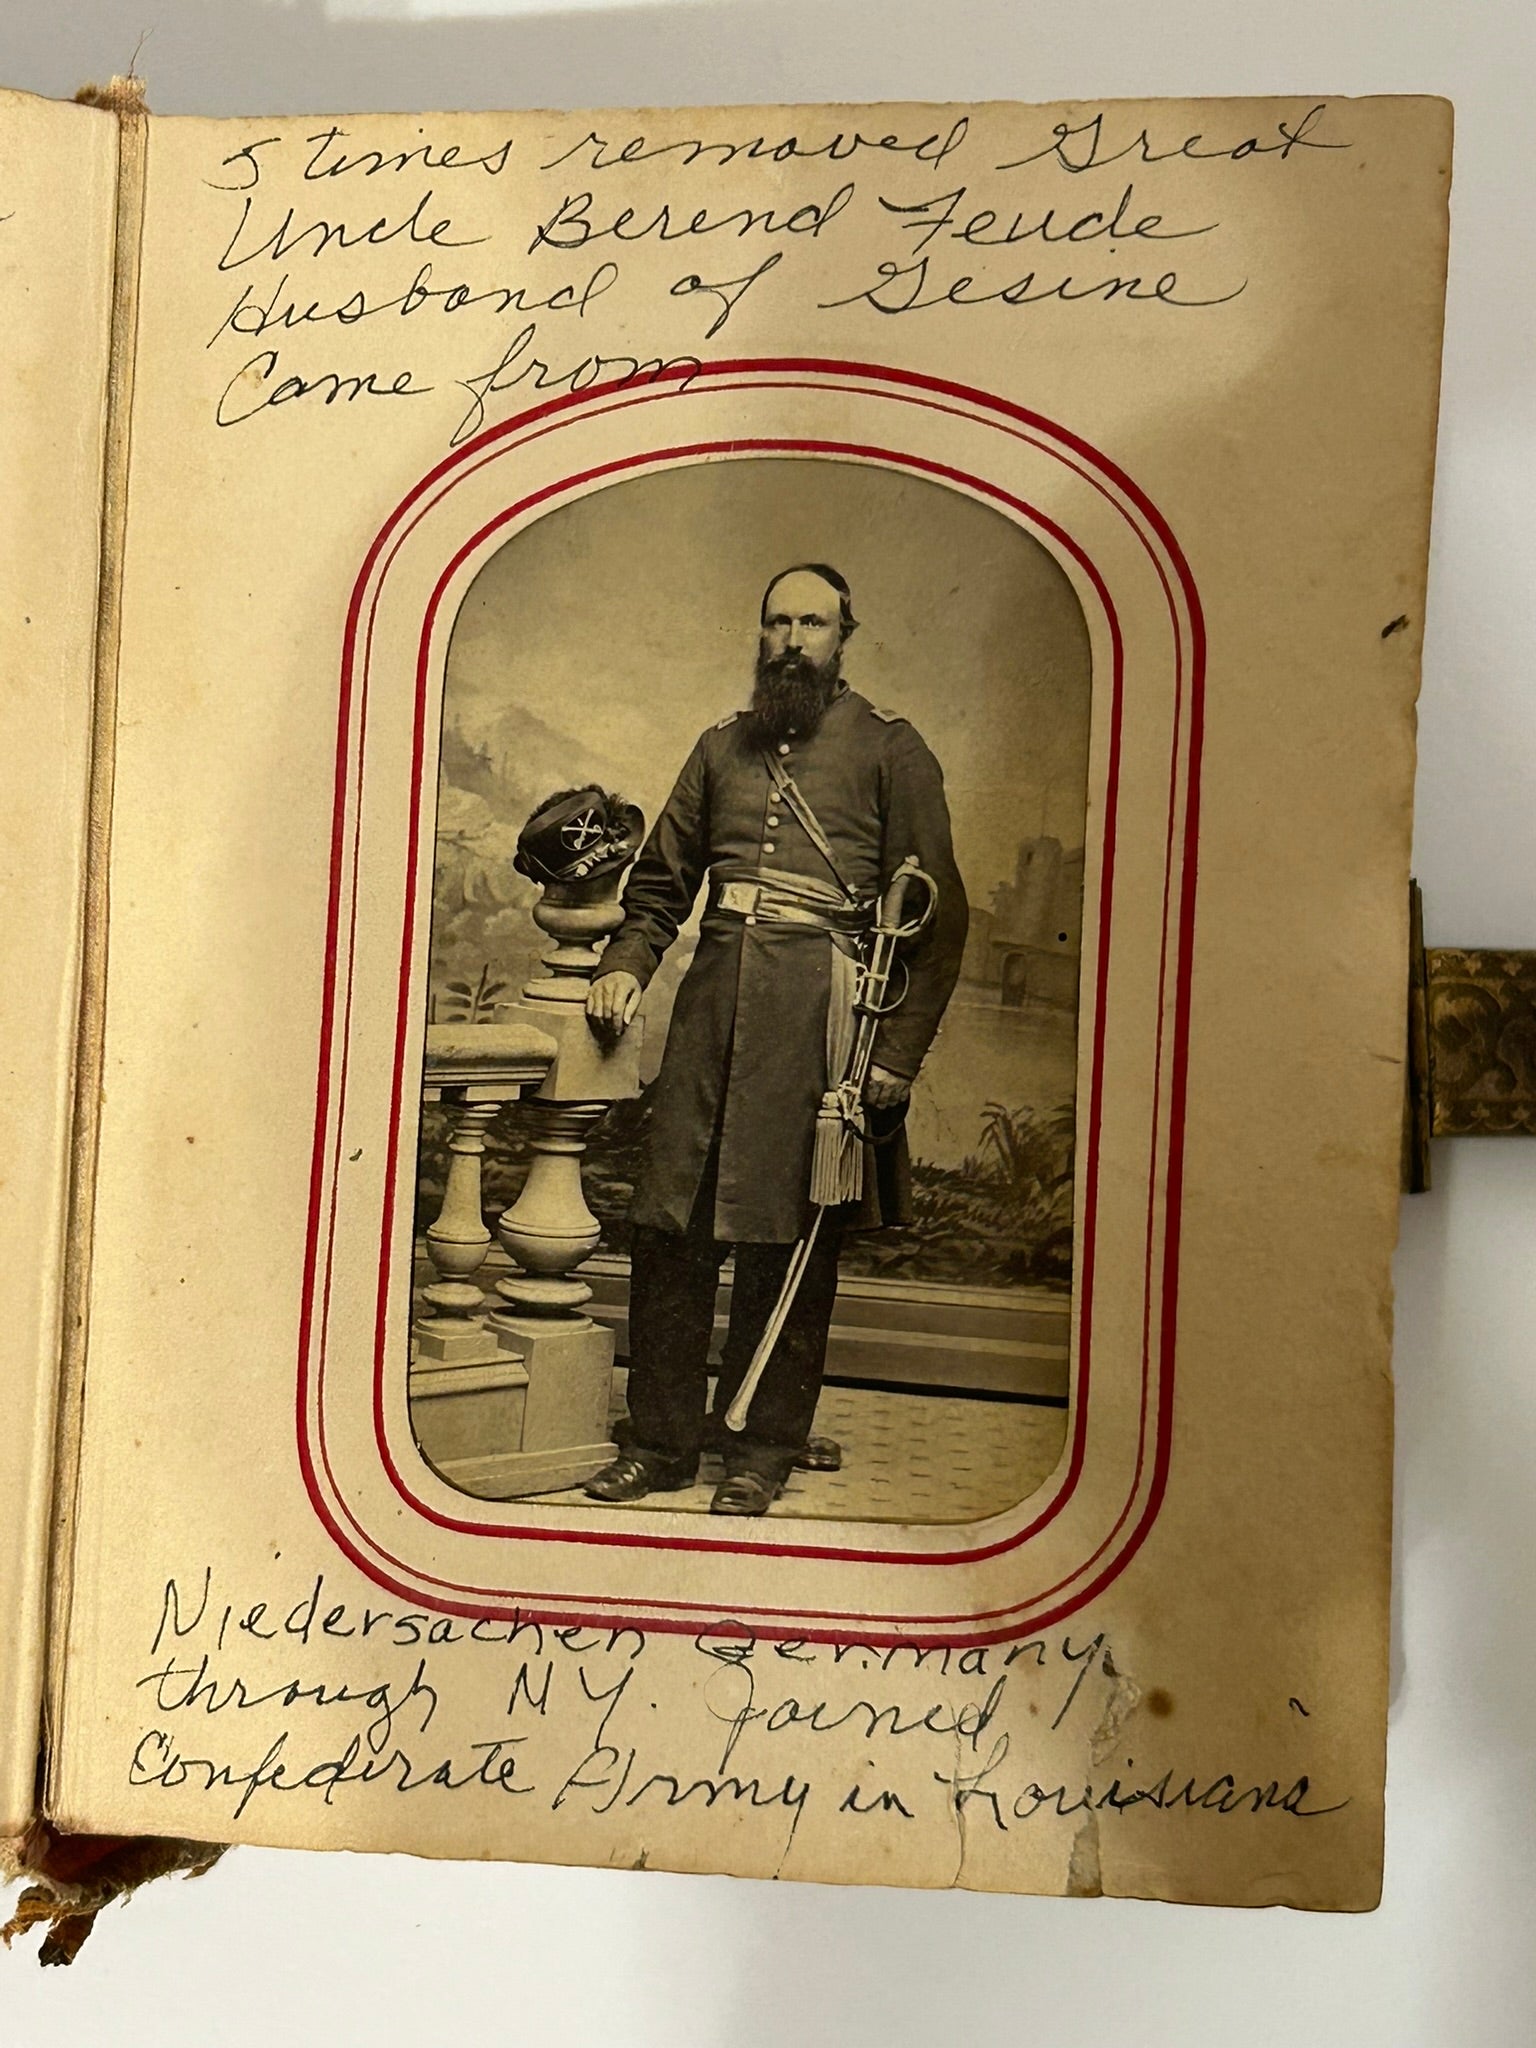 5 times removed Great
Uncle Berend Feude
Husband of Gesine
Came from
Niedersachen Germany
through NY. Joined
Confederate Army in Louisiana